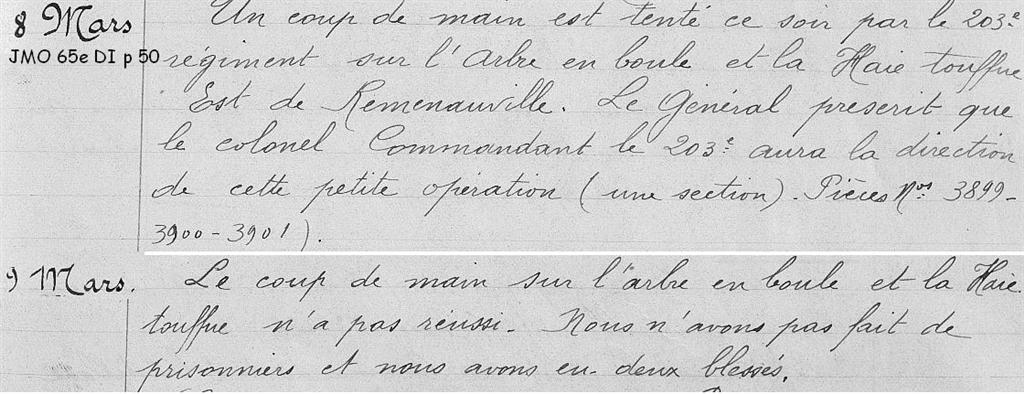 8 Mars Un coup de main est tenté ce soir par le 203e
JMO 65e DI p 50 régiment sur l'Arbre en boule et la Haie touffue
Est de Remenauville. Le Général prescrit que
le colonel Commandant le 203e aura la direction
de cette petite opération (une section). Pièces Nos 3899-
3900-3901).
9 Mars. Le coup de main sur l'arbre en boule et la Haie
touffue n'a pas réussi. Nous n'avons pas fait de
prisonniers et nous avons eu deux blessés.